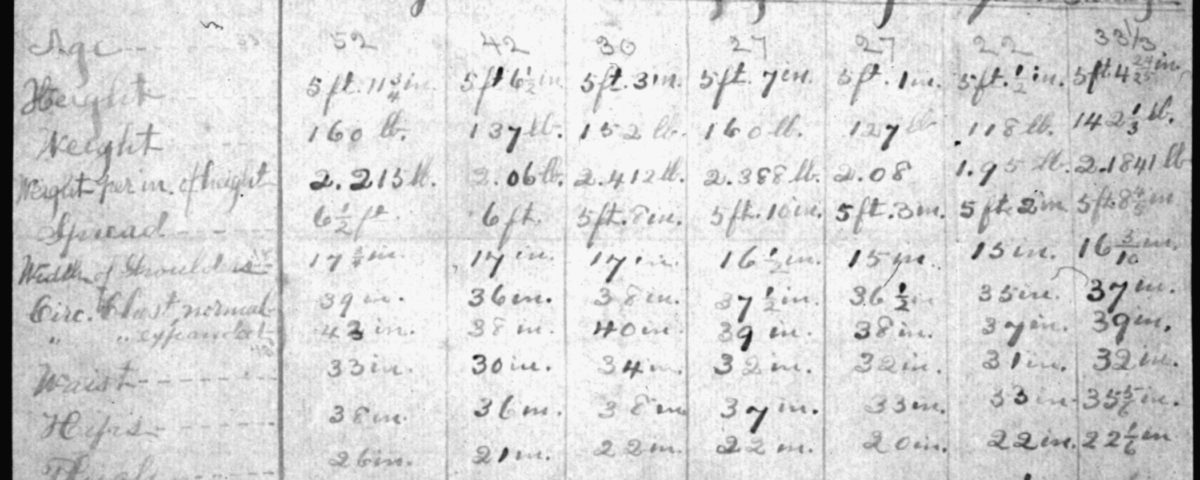 Age 52 42 30 27 27 22 33 1/3
Height 5 ft. 11 3/4 in. 5 ft 6 1/2 in 5 ft. 3 in. 5 ft. 7 in. 5 ft. 1 in. 5 ft. 1/2 in. 5 ft. 4 in.
Weight 160 lb. 137 lb. 152 lb. 160 lb. 127 lb 118 lb. 142 1/3 lb.
Weight per in. of height 2.215 lb. 2.06 lb. 2.412 lb. 2.388 lb. 2.08 1.95 lb. 2.1841 lb
Spread 6 1/2 ft. 6 ft. 5 ft. 8 in. 5 ft. 10 in. 5 ft. 3 in. 5 ft. 2 in 5 ft. 8 4/5 in
Width of Shoulders 17 3/4 in. 17 in. 17 in. 16 1/2 in. 15 in. 15 in. 16 3/10 in.
Circ. Chest normal 39 in. 36 in. 38 in. 37 1/2 in. 36 1/2 in 35 in. 37 in.
" " expanded 43 in. 38 in. 40 in. 39 in. 38 in. 37 in. 39 in.
Waist 33 in. 30 in. 34 in. 32 in. 32 in. 31 in. 32 in.
Hips 38 in. 36 in. 38 in. 37 in. 33 in. 33 in. 35 5/6 in.
Thigh 26 in. 21 in. 22 in. 22 in. 20 in. 22 in. 22 1/6 in